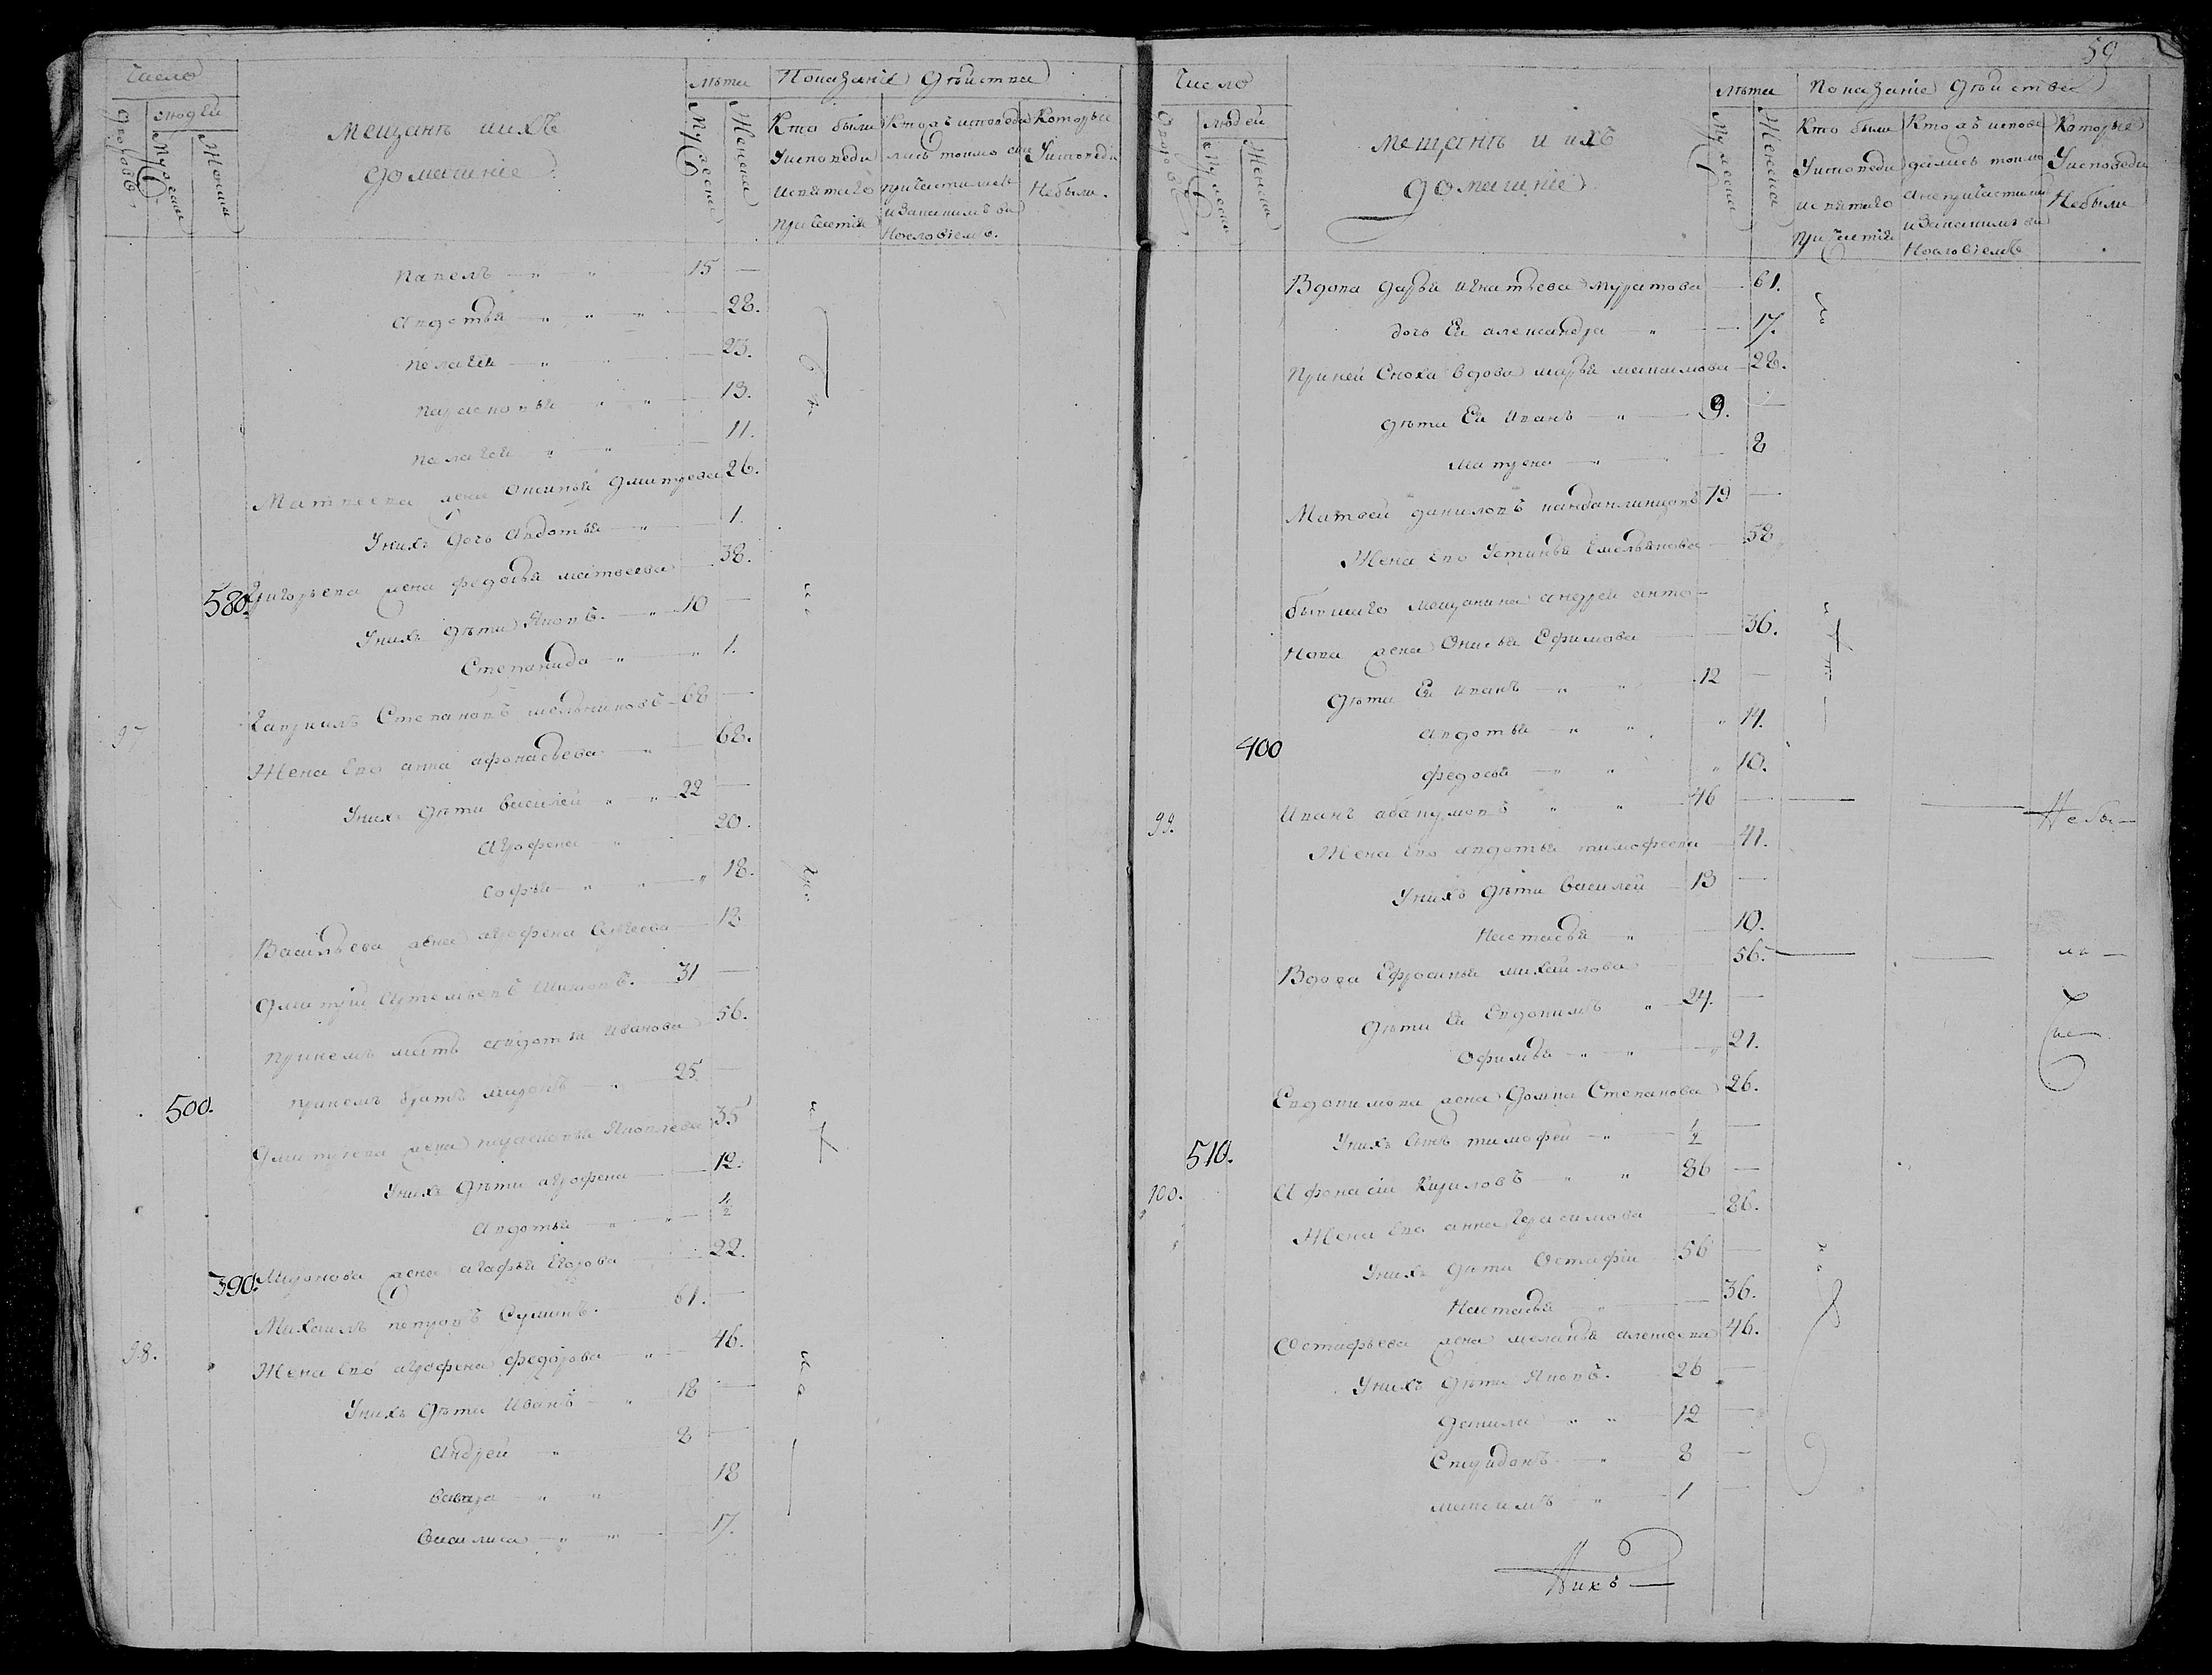 Число
Дворовъ
людей
Мужеска
Женска
Мещанъ ихъ
домашніе
Лѣта
Мужеска
Женска
Показаніе дѣйства
Кто были
Уисповеди
исвятаго
причастія
Ктожъ исповеда
лись токмо
причастились
изакакимъ ви
нословіемъ.
Которые
Уисповеди
Небыли.
Павелъ 15 —
Авдотья 28.
Пелагея 23.
Парасковья 13.
Палагея 11.
Матвеева жена Аксинья Дмитрева 26.
Унихъ дочь Авдотья 1.
580. Григорьева жена федосья матвеева 38.
Унихъ дѣти Яковъ. 10 —
Степанида 1.
97 Гаврилъ Степановъ мельниковъ 68 —
Жена Его анна афонасьева 68.
Унихъ дѣти василей 22 —
Аграфена 20.
Софья 18.
Васильева жена аграфена 18
Дмитрій Артемьевъ 31 —
Принемъ мать авдотья Иванова 56.
500. Принемъ братъ миронъ 25 —
Дмитрева жена парасковья Яковлева 35
Унихъ дѣти аграфена 12.
Авдотья ½
390. Миронова жена агафья Егорова 22.
98. Михаилъ петровъ Суминъ. 61. —
Жена Его аграфена федорова 46.
Унихъ дѣти Иванъ 18 —
Андрей 8 —
варвара 18
Василиса 17.
59
Число
Дворовъ
людей
Мужеска
Женска
Мещанъ и ихъ
домашніе
Лѣта
Мужеска
Женска
Показаніе дѣйства
Кто были
Уисповеди
исвятаго
причастія
Ктожъ испове
дались токмо
анепричастились
изакакимъ ви
нословіемъ
Которые
Уисповеди
Небыли
Вдова дарья игнатьева муратова 61.
дочь Ея александра 17.
Приней Сноха вдова марья максимова 28.
дѣти Ея Иванъ 9. —
Матрена 8
Матвей даниловъ 79 —
Жена Его Устинья Емельянова 58.
бывшаго мещанина андрея анто-
нова жена Онисья Ефимова 36.
дѣти Ея иванъ 12 —
авдотья 14.
400 федосья 10.
99. Иванъ абакумовъ 46 — Небы—
Жена Его авдотья тимофеева 41.
Унихъ дѣти василей 13 —
Настасья 10.
Вдова Ефросинья михайлова 56. — ли —
дѣти Ея Евдокимъ 24. —
Офимья 21.
Евдокимова жена домна Степанова 26.
510. Унихъ сынъ тимофей ½ —
100. Афонасій Кириловъ 86 —
Жена Его анна герасимова 86.
Унихъ дѣти Остафій 56 —
Настасья 36.
Остафьева жена меланья алексеева 46.
Унихъ дѣти Яковъ. 26 —
данила 12 —
Спиридонъ 8 —
максимъ 1 —